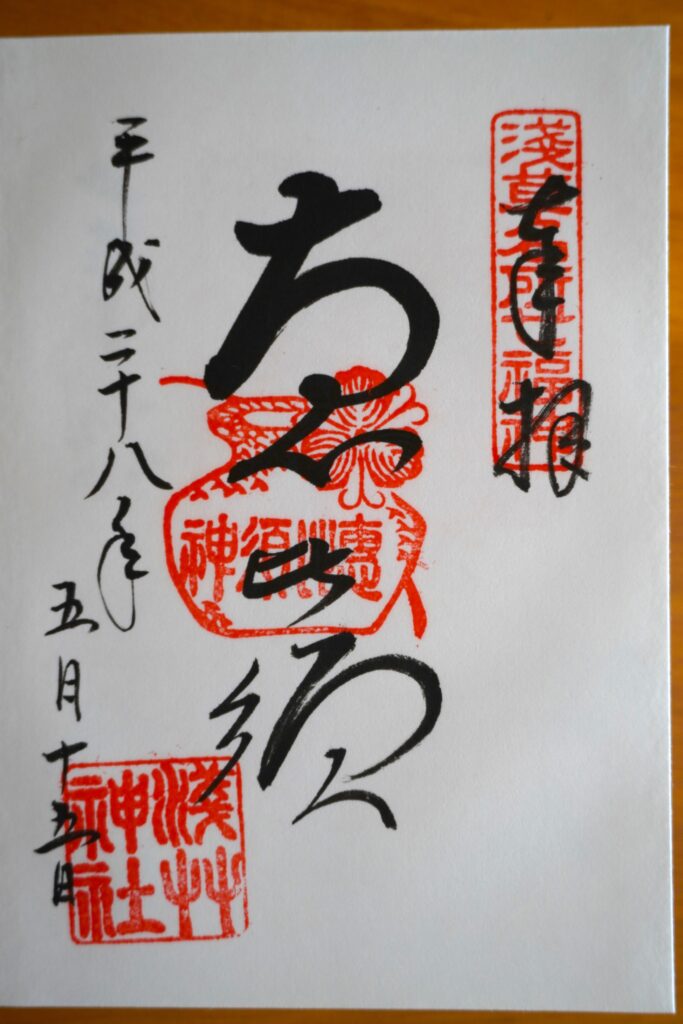 淺草名所七福神
奉拝
恵比須
惠比須神
平成二十八年
五月十五日
淺艸
神社